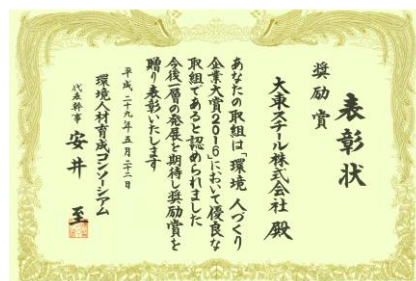 表彰状
奨励賞
大東スチール株式会社 殿
あなたの取組は「環境 人づくり
企業大賞2016」において優良な
取組であると認められました
今後一層の発展を期待し奨励賞を
贈り表彰いたします
平成二十九年五月二十二日
環境人材育成コンソーシアム
代表幹事 安井 至